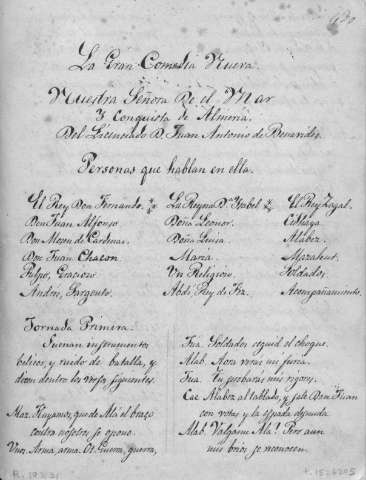 La Gran Comedia Nueva.
Nuestra Señora De el Mar
Y Conquista de Almeria.
Del Licenciado D. Juan Antonio de Benavides.
Personas que hablan en ella.
El Rey Don Fernando.
Don Juan Alfonso
Don Mosen de Cardenas.
Don Juan Chacon
Pulpo, Gracioso
Andres, Sargento.
La Reyna D.ª Isabel
Doña Leonor.
Doña Luisa.
Maria.
Un Religioso.
Abdi, Rey de Fez.
El Rey Zagal.
Celilaya
Alabez.
Mazahut.
Soldados.
Acompañamiento.
Jornada Primera.
Suenan instrumentos
belicos, y ruido de batalla, y
dicen dentro los versos siguientes.
Maz. Huyamos, que de Ala el brazo
contra nosotros se opone.
Unos. Arma, arma. Ot. Guerra, guerra,
Jua. Soldados seguid el choque.
Alab. Aora veras mi furia.
Jua. Tu probaras mis rigores.
Cae Alabez al tablado, y sale Don Juan
con votas y la espada desnuda.
Alab. Valgame Ala! Pero aun
mis brios se reconocen.